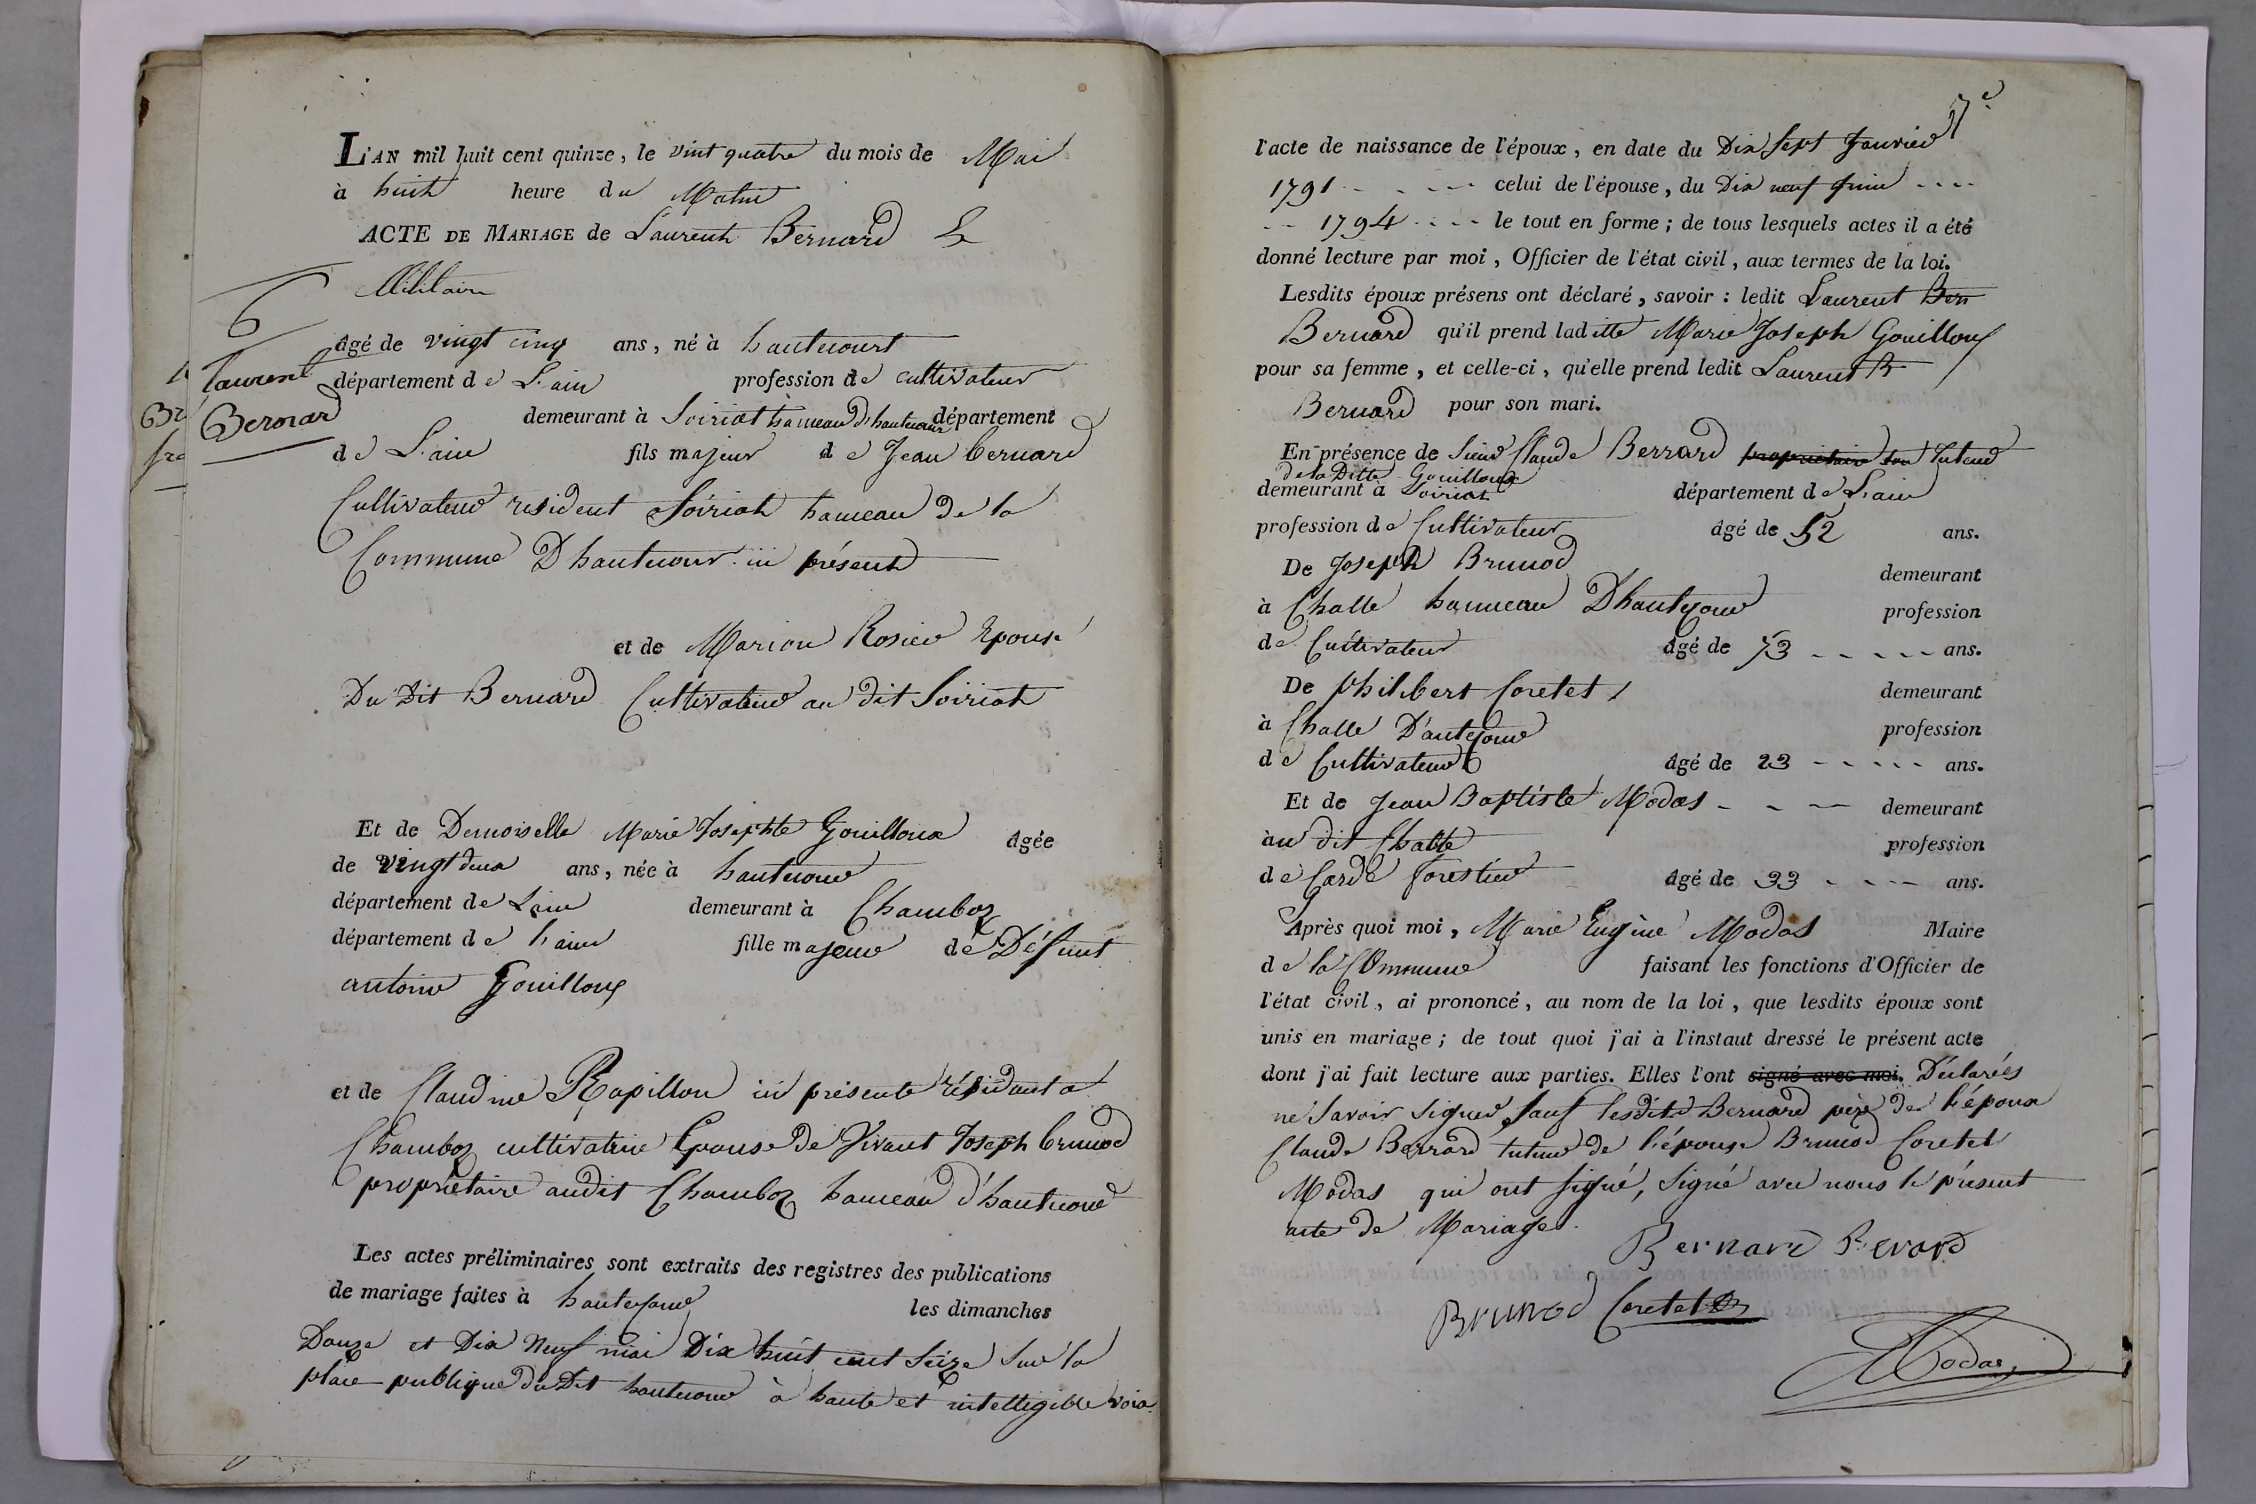 L'AN mil huit cent quinze, le vint quatre du mois de Mai
à huit heure du Matin
ACTE DE MARIAGE de Laurent Bernard
Militaire
6
âgé de vingt cinq ans, né à hautecourt
Laurent
Bernard
département de L'ain profession de cultivateur
demeurant à Soiriat hameau d'hautecour département
de L'ain fils majeur de Jean bernard
Cultivateur resident Soiriat hameau de la
Commune D'hautecour ici présent
et de Marion Rosier Epouse
Du Dit Bernard Cultivateur au dit Soiriat
Et de Demoiselle Marie Josephte Gouilloux âgée
de vingt deux ans, née à hautecour
département de L'ain demeurant à Chamboz
département de L'ain fille majeur de Défunt
antoine Gouilloux
et de Claudine Rapillon ici présente résidant a
Chamboz cultivatrice Epouse de Vivant Joseph brunod
propriétaire audit Chamboz hameau d'hautecour
Les actes préliminaires sont extraits des registres des publications
de mariage faites à hautecour les dimanches
Douze et Dix Neuf mai Dix huit cent Seize Sur la
place publique du Dit hautecour à haute et intelligible voix
7e
l'acte de naissance de l'époux, en date du Dix Sept Janvier
1791 celui de l'épouse, du Dix neuf Juin
1794 le tout en forme; de tous lesquels actes il a été
donné lecture par moi, Officier de l'état civil, aux termes de la loi.
Lesdits époux présens ont déclaré, savoir: ledit Laurent Ber
Bernard qu'il prend laditte Marie Joseph Gouilloux
pour sa femme, et celle-ci, qu'elle prend ledit Laurent B
Bernard pour son mari.
En présence de Sieur Claude Berrard propriétaire son tuteur
de la Ditte Gouilloux
demeurant à Soiriat département de L'ain
profession de Cultivateur âgé de 52 ans.
De Joseph Brunod demeurant
à Challe hameau D'hautecour profession
de Cultivateur âgé de 53 ans.
De philibert Coretet demeurant
à Challe D'autecour profession
de Cultivateur âgé de 23 ans.
Et de Jean Baptiste Modas demeurant
au dit Challe profession
de Garde forestier âgé de 33 ans.
Après quoi moi, Marie Eugène Modas Maire
de la Commune faisant les fonctions d'Officier de
l'état civil, ai prononcé, au nom de la loi, que lesdits époux sont
unis en mariage; de tout quoi j'ai à l'instaut dressé le présent acte
dont j'ai fait lecture aux parties. Elles l'ont signé avec moi. Déclarées
ne Savoir Signer Sauf lesdits Bernard père de l'époux
Claude Berrard tuteur de l'épouse Brunod Coretet
Modas qui ont signé, Signé avec nous le présent
acte de Mariage.
Bernard Berard
Brunod Coretet
Modas